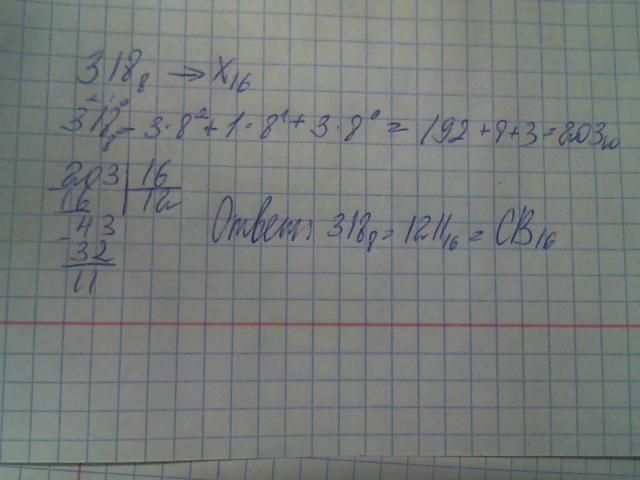 318₈ → X₁₆
3²1¹8⁰₈ = 3·8² + 1·8¹ + 3·8⁰ = 192 + 8 + 3 = 203₁₀
203 | 16
16 | 12
- 43
32
11
Ответ: 318₈ = 1211₁₆ = CB₁₆